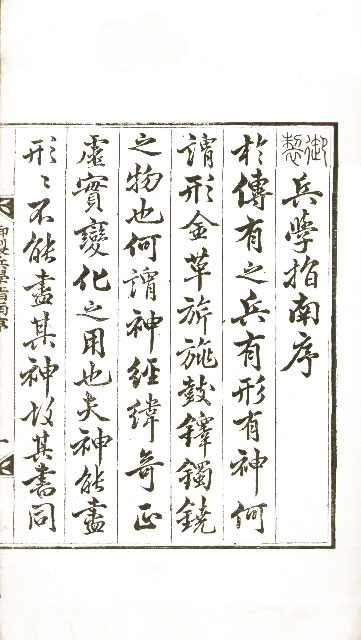 御製兵學指南序
於傳有之兵有形有神何
謂形金革旂旄鼓鐸鐲鐃
之物也何謂神經緯奇正
虛實變化之用也夫神能盡
形〻不能盡其神故其書同
御製兵學指南序
一